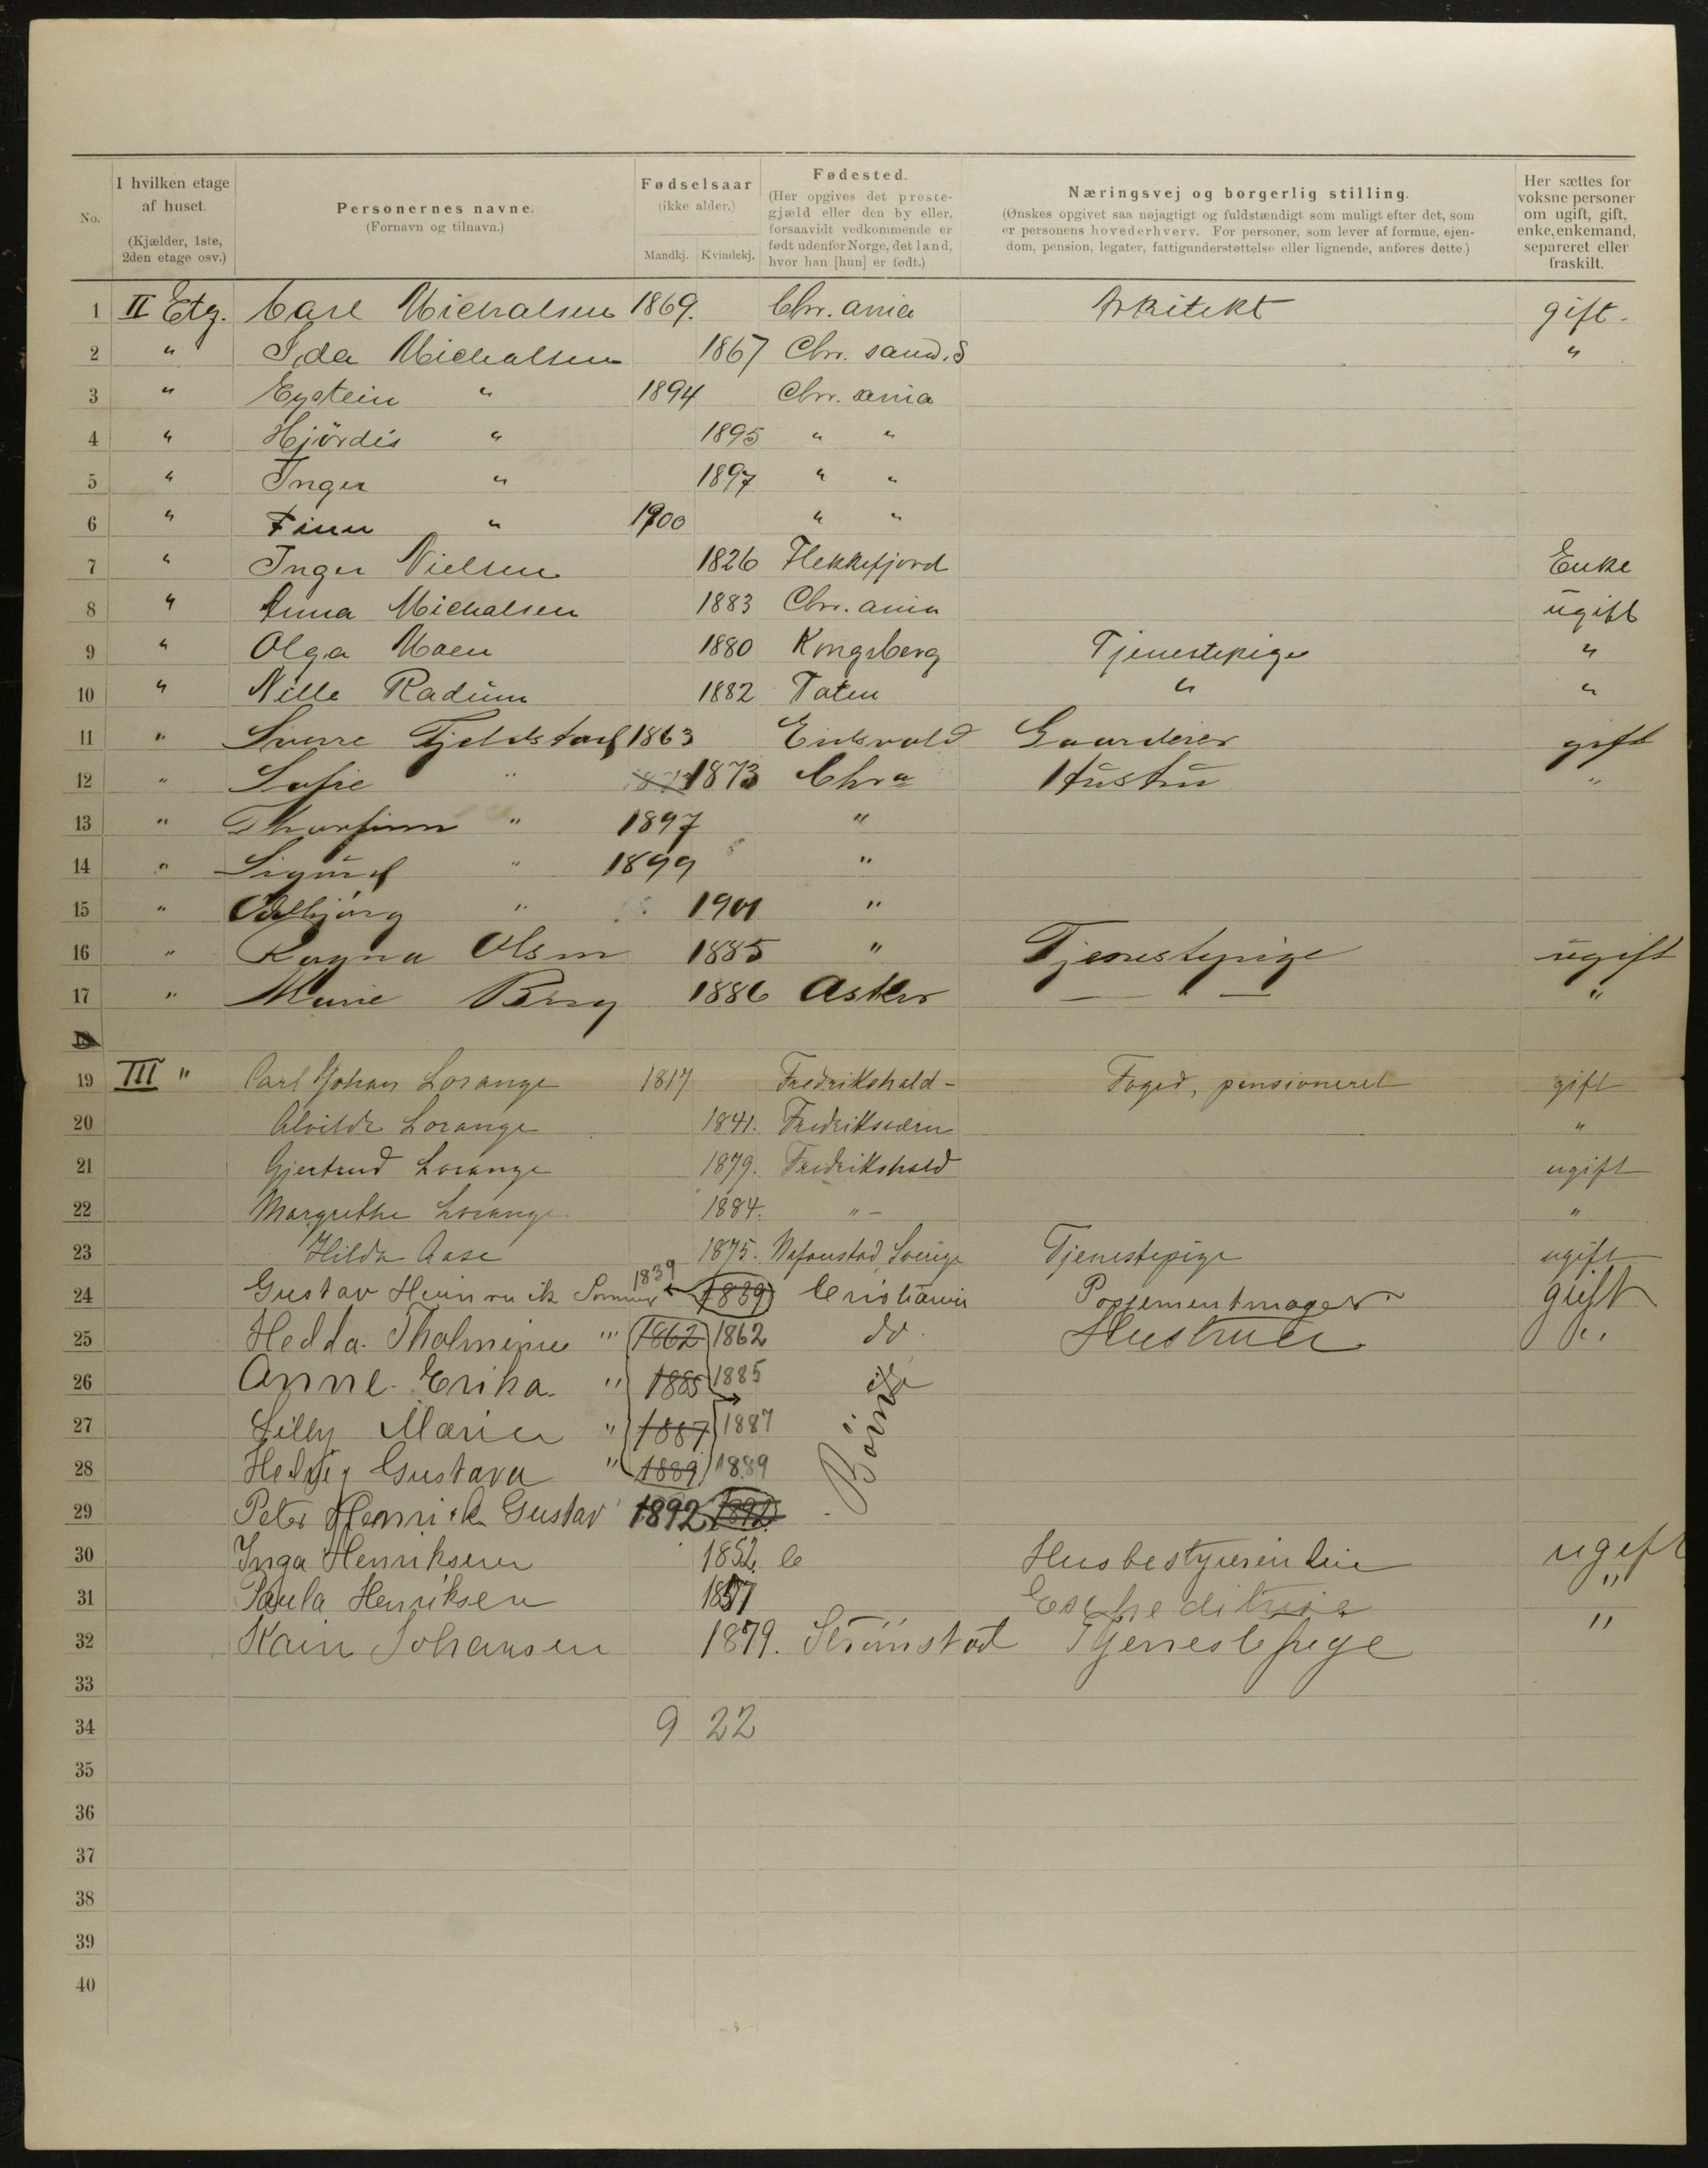 No.
I hvilken etage af huset. (Kjælder, 1ste, 2den etage osv.)
Personernes navne. (Fornavn og tilnavn.)
Fødselsaar (ikke alder.)
Mandkj. Kvindekj.
Fødested. (Her opgives det prestegjæld eller den by eller, forsaavidt vedkommende er født udenfor Norge, det land, hvor han [hun] er født.)
Næringsvej og borgerlig stilling. (Ønskes opgivet saa nøjagtigt og fuldstændigt som muligt efter det, som er personens hovederhverv. For personer, som lever af formue, ejendom, pension, legater, fattigunderstøttelse eller lignende, anføres dette.)
Her sættes for voksne personer om ugift, gift, enke, enkemand, separeret eller fraskilt.
1 II Etg. Carl Michalsen 1869. Chr. ania Arkitekt gift.
2 " Ida Michalsen 1867 Chr. sand. S "
3 " Eystein " 1894 Chr. ania
4 " Hjördis " 1895 " "
5 " Inger " 1897 " "
6 " Finn " 1900 " "
7 " Inger Nielsen 1826 Flekkefjord Enke
8 " Anna Michalsen 1883 Chr. ania ugift
9 " Olga Moen 1880 Kongsberg Tjenestepige "
10 " Nille Radum 1882 Toten " "
11 " Sverre Fjeldstad 1863 Eidsvold Gaardeier gift
12 " Sofie " 1873 Chra Hustru "
13 " Thorfinn " 1897 "
14 " Sigurd " 1899 "
15 " Odbjörg " 1901 "
16 " Ragna Olsen 1885 " Tjenestepige ugift
17 " Marie Berg 1886 Asker — " — "
18
19 III " Carl Johan Lorange 1817 Fredrikshald - Foged, pensioneret gift
20 Alvilde Lorange 1841. Fredriksværn "
21 Gjertrud Lorange 1879. Fredrikshald ugift
22 Margrethe Lorange 1884. " - "
23 Hilda Aase 1875. Sverige Tjenestepige ugift
24 Gustav Heinrik 1839 1839 Cristiania Possementmager gift
25 Hedda Tholmine " 1862 1862 do. Hustru "
26 Anne Erika " 1885 1885
27 Lilly Marie " 1887 1887 Börn
28 Hedvig Gustava " 1889 1889
29 Peter Henrik Gustav 1892 1892
30 Inga Henriksen 1852. C Husbestyrerinde ugift
31 Paula Henriksen 1857 Expeditrice "
32 Karin Johansen 1879. Strömstad Tjenestepige "
33
34 9 22
35
36
37
38
39
40